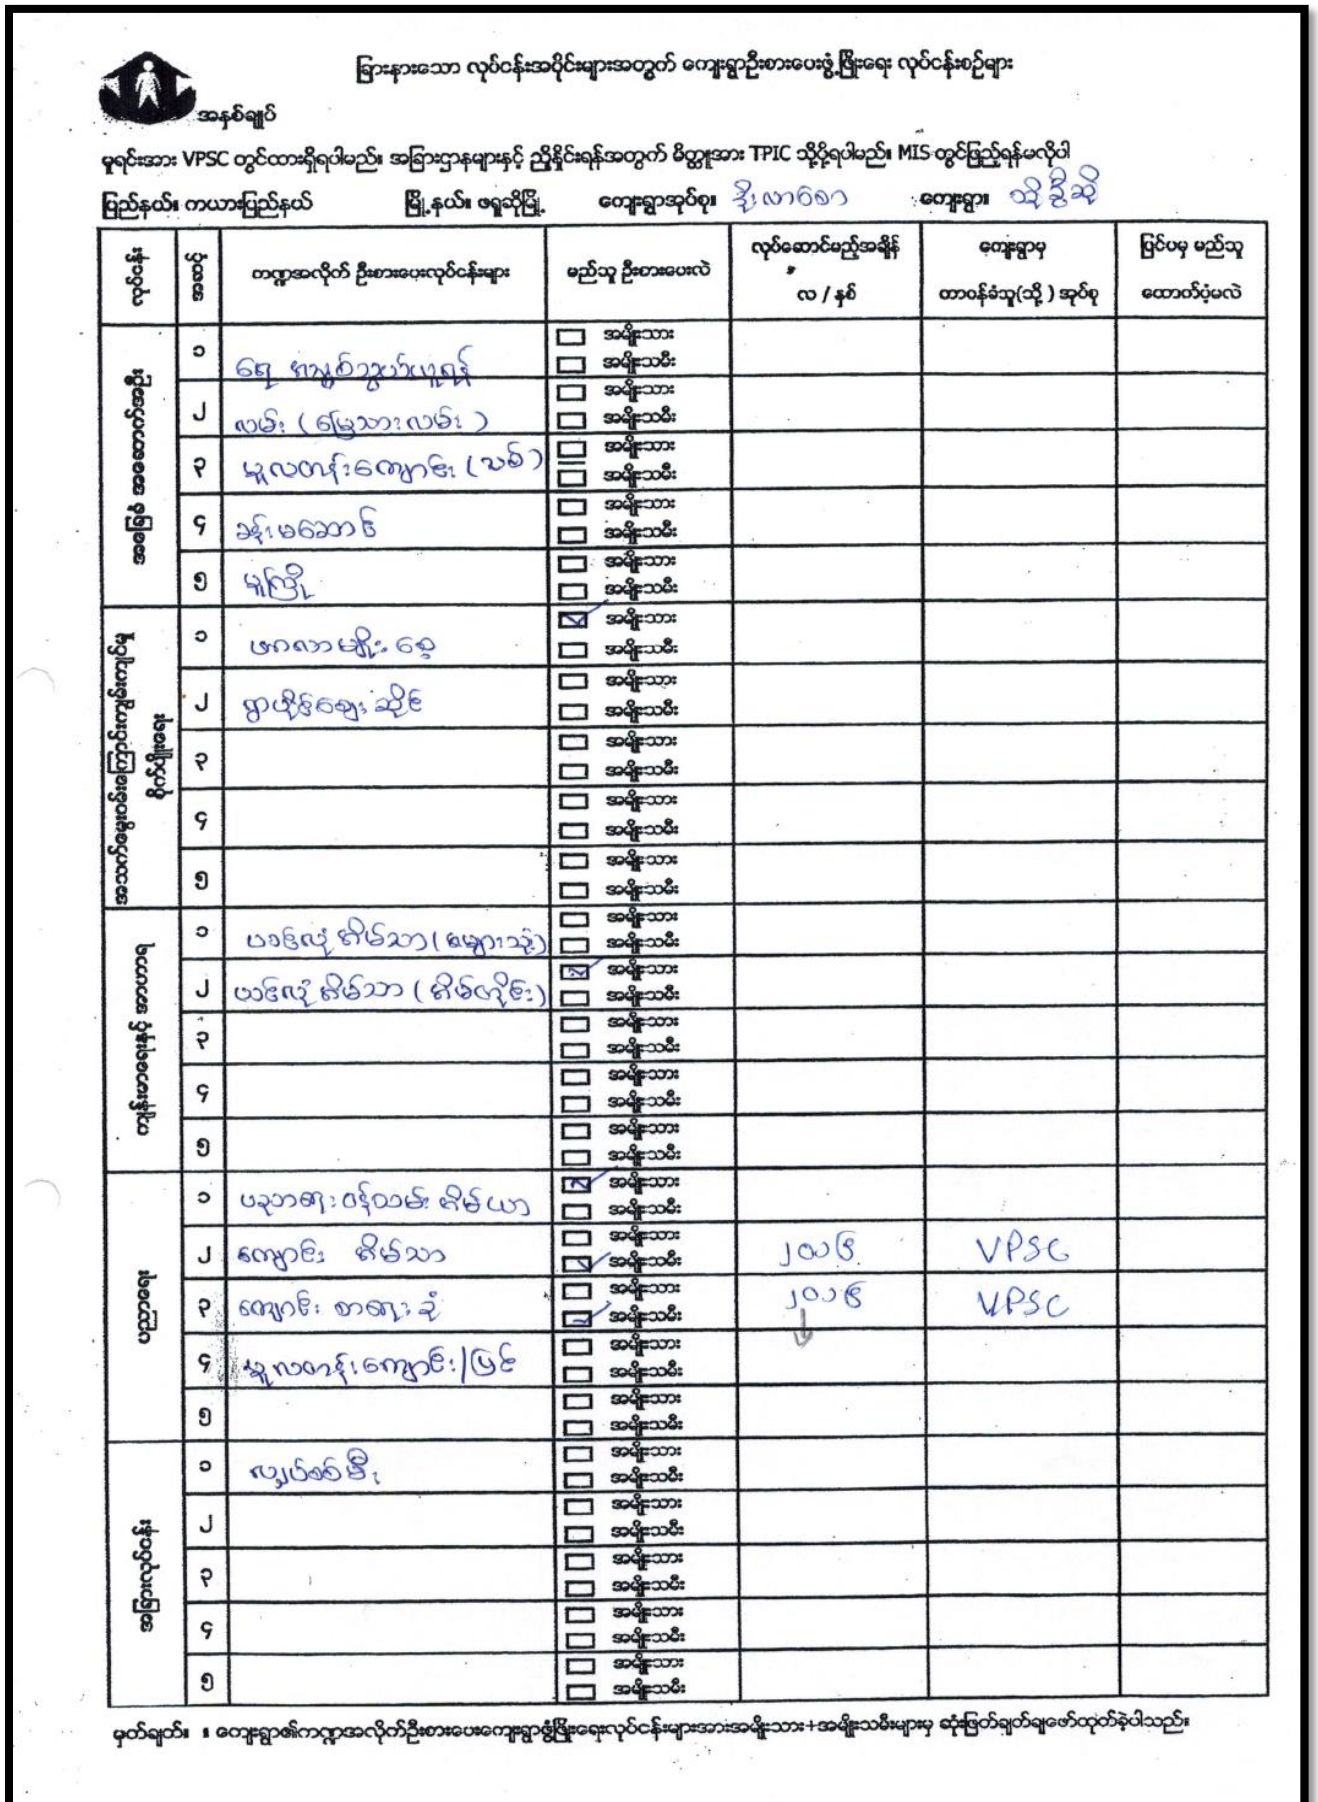 ခြားနားသော လုပ်ငန်းအပိုင်းများအတွက် ကျေးရွာဦးစားပေးဖွံ့ဖြိုးရေး လုပ်ငန်းစဉ်များ
အနှစ်ချုပ်
မူရင်းအား VPSC တွင်ထားရှိရပါမည်။ အခြားဌာနများနှင့် ညှိနှိုင်းရန်အတွက် မိတ္တူအား TPIC သို့ပို့ရပါမည်။ MIS တွင်ဖြည့်ရန်မလိုပါ
ပြည်နယ်။ ကယားပြည်နယ် မြို့နယ်။ ဖရူဆိုမြို့ ကျေးရွာအုပ်စု။ ဒိုးလာစော ကျေးရွာ။
လုပ်ငန်း အဆင့် ကဏ္ဍအလိုက် ဦးစားပေးလုပ်ငန်းများ မည်သူ ဦးစားပေးလဲ လုပ်ဆောင်မည့်အချိန် လ / နှစ် ကျေးရွာမှ တာဝန်ခံသူ(သို့) အုပ်စု ပြင်ပမှ မည်သူ ထောက်ပံ့မလဲ
အခြေခံ အဆောက်အဦး
၁ ရေ အမျသွယ်ယူရန် အမျိုးသား အမျိုးသမီး
၂ လမ်း (မြေသားလမ်း) အမျိုးသား အမျိုးသမီး
၃ မူလတန်းကျောင်း (သစ်) အမျိုးသား အမျိုးသမီး
၄ ခန်းမဆောင် အမျိုးသား အမျိုးသမီး
၅ မူကြို အမျိုးသား အမျိုးသမီး
အသက်မွေးဝမ်းကြောင်းကျွမ်းကျင်မှု စိုက်ပျိုးရေး
၁ ဖာလာမျိုးစေ့ အမျိုးသား အမျိုးသမီး
၂ ရွာပိုင်ဈေးဆိုင် အမျိုးသား အမျိုးသမီး
၃ အမျိုးသား အမျိုးသမီး
၄ အမျိုးသား အမျိုးသမီး
၅ အမျိုးသား အမျိုးသမီး
ကျန်းမာရေးနှင့် အာဟာရ
၁ ယင်လုံအိမ်သာ (များသုံး) အမျိုးသား အမျိုးသမီး
၂ ယင်လုံအိမ်သာ (အိမ်တိုင်း) အမျိုးသား အမျိုးသမီး
၃ အမျိုးသား အမျိုးသမီး
၄ အမျိုးသား အမျိုးသမီး
၅ အမျိုးသား အမျိုးသမီး
ပညာရေး
၁ ပညာရေးဝန်ထမ်းအိမ်ယာ အမျိုးသား အမျိုးသမီး
၂ ကျောင်း အိမ်သာ အမျိုးသား အမျိုးသမီး ၂၀၁၆ VPSC
၃ ကျောင်း စာရေးခုံ အမျိုးသား အမျိုးသမီး ၂၀၁၆ VPSC
၄ မူလတန်းကျောင်း/ပြင် အမျိုးသား အမျိုးသမီး
၅ အမျိုးသား အမျိုးသမီး
အခြားလုပ်ငန်း
၁ လျှပ်စစ်မီး အမျိုးသား အမျိုးသမီး
၂ အမျိုးသား အမျိုးသမီး
၃ အမျိုးသား အမျိုးသမီး
၄ အမျိုးသား အမျိုးသမီး
၅ အမျိုးသား အမျိုးသမီး
မှတ်ချတ်။ ။ ကျေးရွာ၏ကဏ္ဍအလိုက်ဦးစားပေးကျေးရွာဖွံ့ဖြိုးရေးလုပ်ငန်းများအားအမျိုးသား+အမျိုးသမီးများမှ ဆုံးဖြတ်ချတ်ချဖော်ထုတ်ခဲ့ပါသည်။